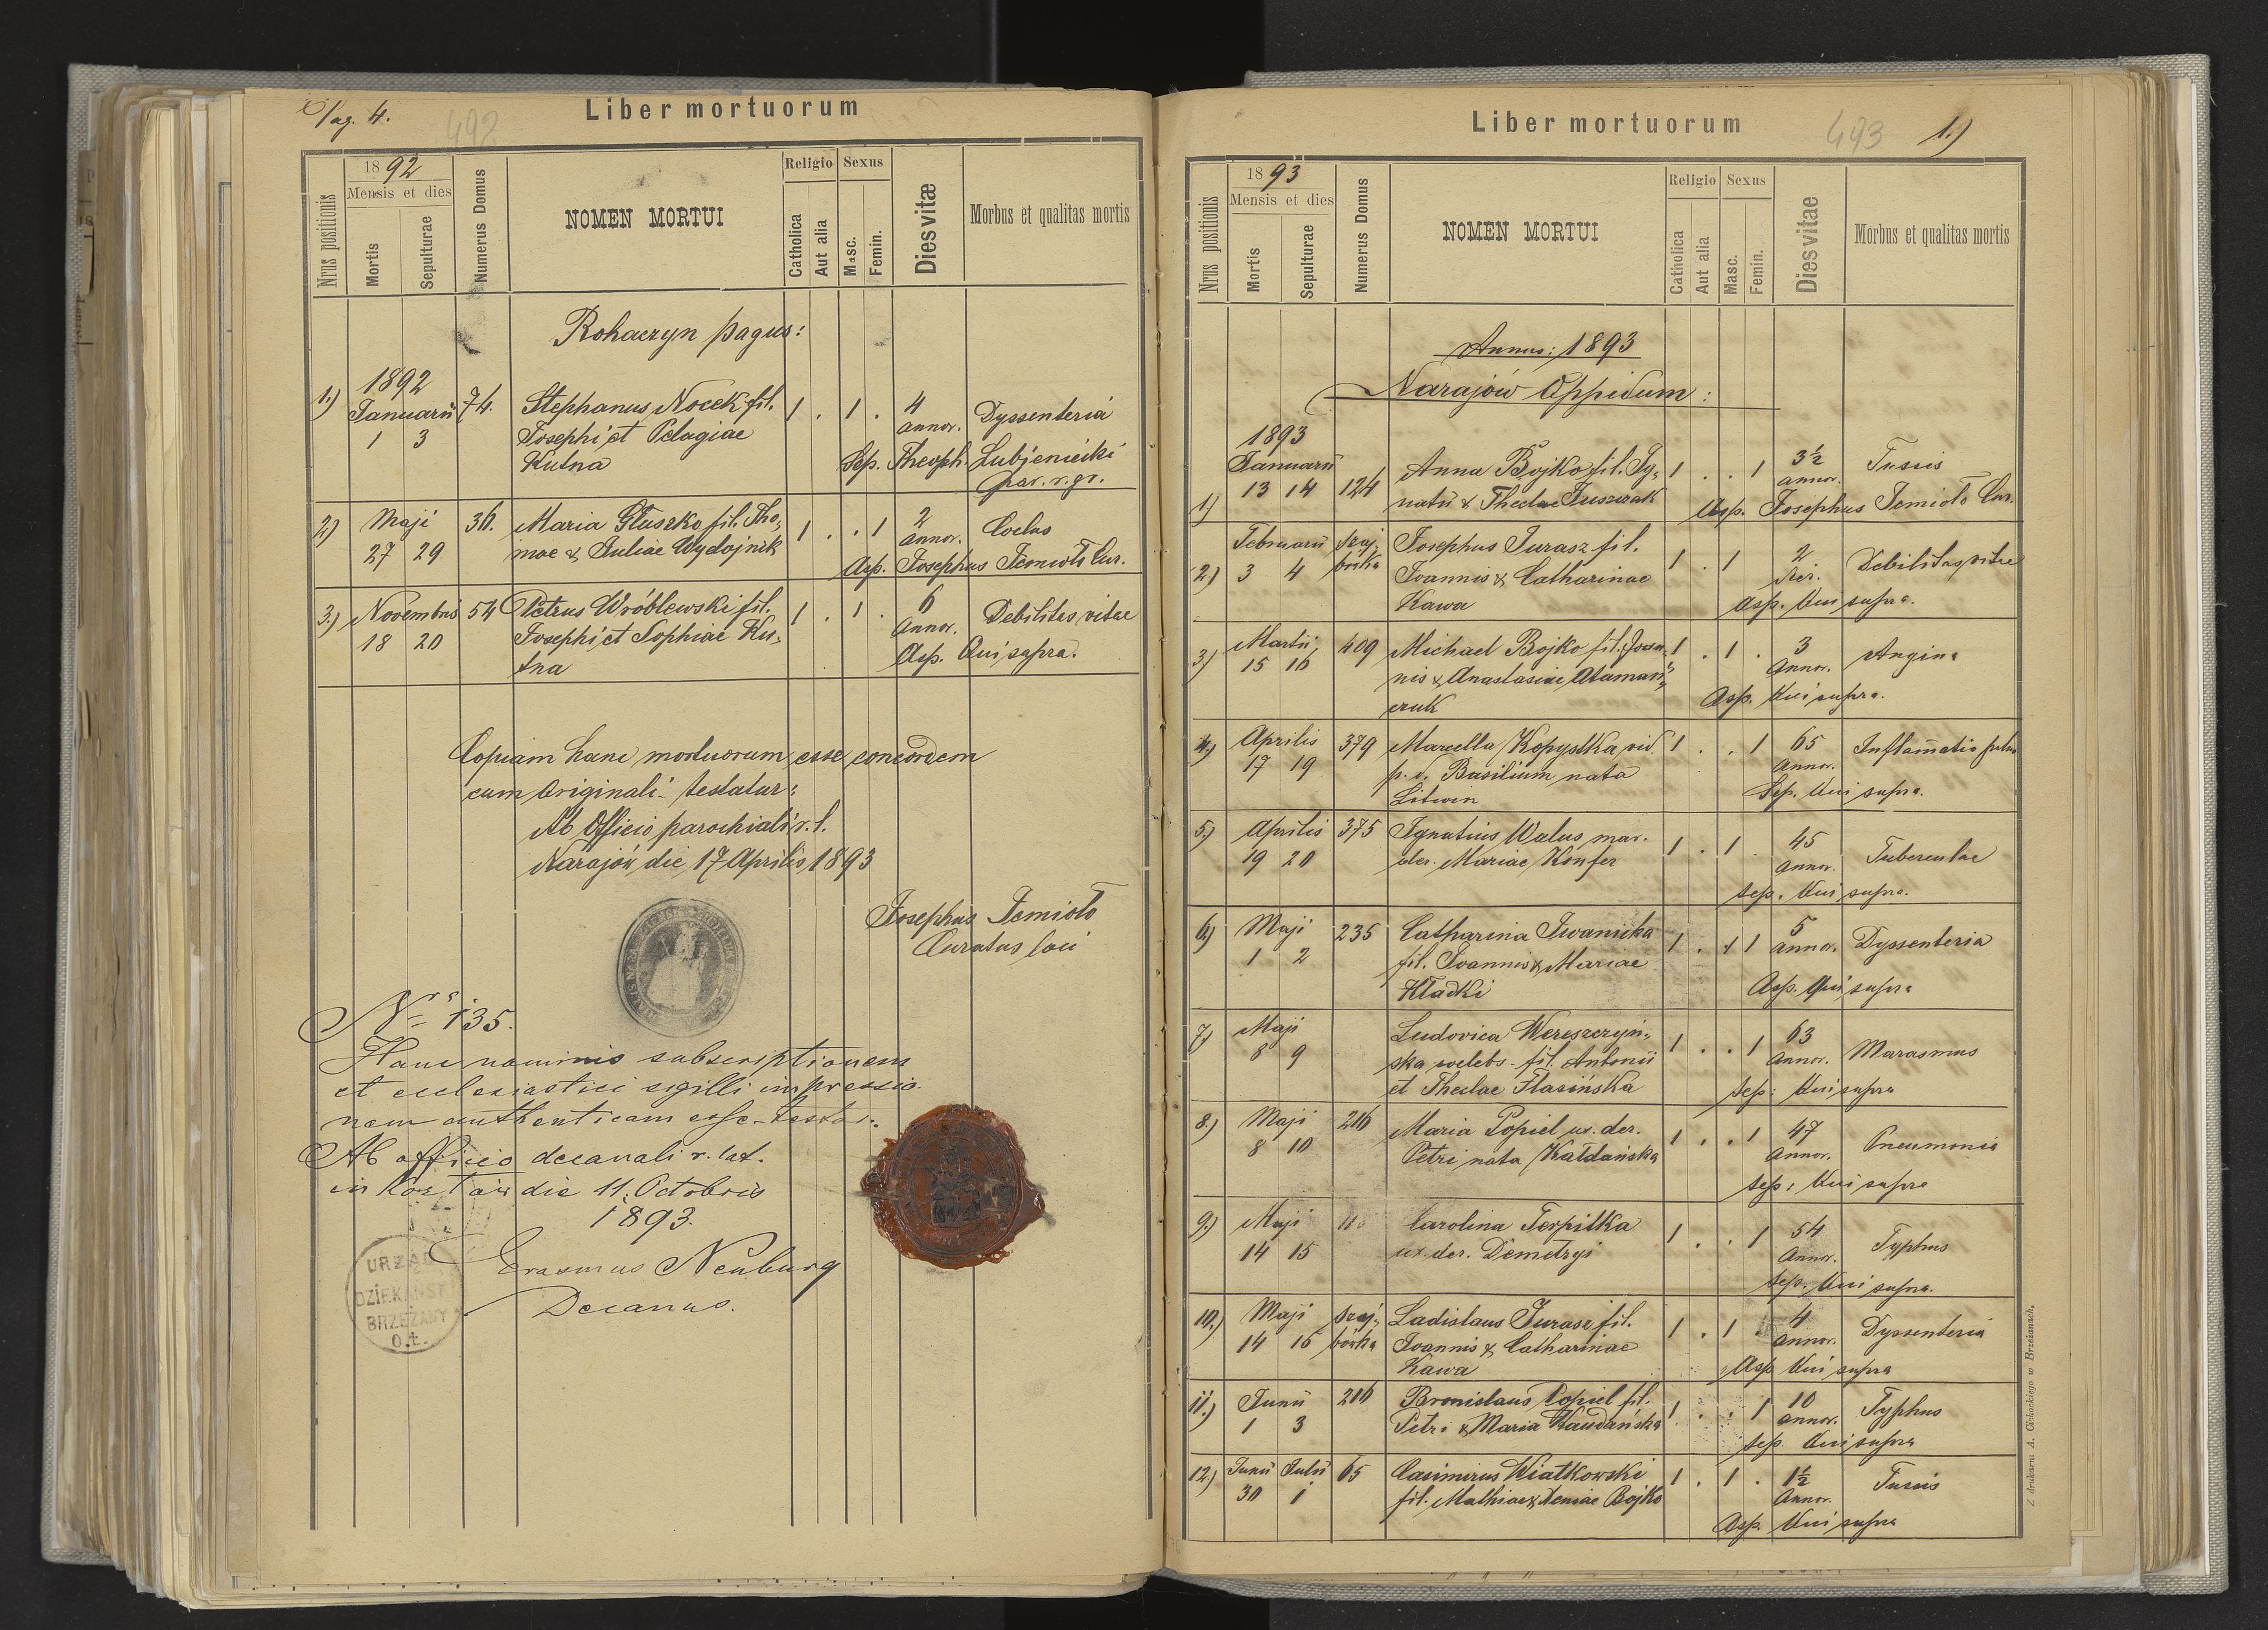 Pag. 4.
492
Liber mortuorum
Nrus positionis
1892
Mensis et dies
Mortis
Sepulturae
Numerus Domus
NOMEN MORTUI
Religio
Catholica
Aut alia
Sexus
Masc.
Femin.
Dies vitæ
Morbus et qualitas mortis
Rohaczyn pagus:
1892
1.) Januarii 74. Stephanus Nocek fil. 1 . 1 . 4 Dyssenteria
1 3 Josephi et Pelagiae annor.
Kutna Sep. Theoph. Lubieniecki
par. r. gr.
2) Maji 36. Maria Głuszko fil. Tho- 1 . . 1 2 Coelus
27 29 mae & Juliae Wydojnik annor.
Asp. Josephus Jemioło Cur.
3.) Novembris 54 Petrus Wróblewski fil. 1 . 1 . 6 Debilitas vitae
18 20 Josephi et Sophiae Ku- Annor.
tna Asp. Qui supra.
Copiam hanc mortuorum esse concordem
cum Originali testatur:
Ab Officio parochiali r. l.
Narajów die 17 Aprilis 1893
Josephus Jemioło
Curatus loci
Nrs 135.
Hanc nominis subscriptionem
et ecclesiastici sigilli impressio-
nem authenticam esse testor.
Ab officio decanali r. lat.
in die 11. Octobris
1893.
Erasmus Neuburg
Decanus.
URZĄD
DZIEKAŃSKI
BRZEŻANY
O.Ł.
Liber mortuorum
493
1.)
Nrus positionis
1893
Mensis et dies
Mortis
Sepulturae
Numerus Domus
NOMEN MORTUI
Religio
Catholica
Aut alia
Sexus
Masc.
Femin.
Dies vitae
Morbus et qualitas mortis
Annus: 1893
Narajów Oppidum:
1893
Januarii Anna Bojko fil. Ig- 1 . . 1 3½ Tussis
1) 13 14 124 natii & Theclae Tuszczak annor.
Asp. Josephus Jemioło Cur.
Februarii Josephus Jurasz fil. 1 . 1 2
2.) 3 4 Joannis & Catharinae Debilitas vitae
Kawa Asp. Qui supra.
3.) Martii 409 Michael Bojko fil. Joan- 1 . 1 . 3 Angina
15 16 nis & Anastasiae Ataman- Annor.
czuk Asp. Qui supra.
4.) Aprilis 379 Marcella Kopystka vid. 1 . . 1 65 Inflamatio pulm
17 19 p. d. Basilium nata Annor.
Litwin Sep. Qui supra.
5.) Aprilis 375 Ignatius Walus mar. 1 . 1 . 45 Tuberculae
19 20 der. Mariae Konfer Annor.
Sep. Qui supra.
6.) Maji 235 Catharina Iwanicka 1 . 1 1 5 Dyssenteria
1 2 fil. Joannis & Mariae annor.
Kładki Asp. Qui supra
7.) Maji Ludovica Wereszczyń- 1 . . 1 63 Marasmus
8 9 ska coelebs fil. Antonii Annor.
et Theclae Flasińska Sep: Qui supra
8.) Maji 216 Maria Popiel ux. der. 1 . . 1 47 Pneumonia
8 10 Petri nata Kałdańska Annor.
Sep: Qui supra
9.) Maji Carolina Terpitka 1 . . 1 54 Typhus
14 15 ux. der. Demetrji Annor.
Sep: Qui supra.
10.) Maji Ladislaus Jurasz fil. 1 . 1 . 4 Dyssenteria
14 16 Joannis & Catharinae annor.
Kawa Asp Qui supra
11.) Junii 216 Bronislaus Popiel fil. 1 . . 1 10 Typhus
1 3 Petri & Maria Kałdańska annor.
Sep. Qui supra
12.) Junii Julii 65 Casimirus Wiatkowski 1 . 1 . 1½ Tussis
30 1 fil. Mathiae & Xeniae Bojko Annor.
Asp. Qui supra
Z drukarni A. Cichockiego w Brzeżanach.